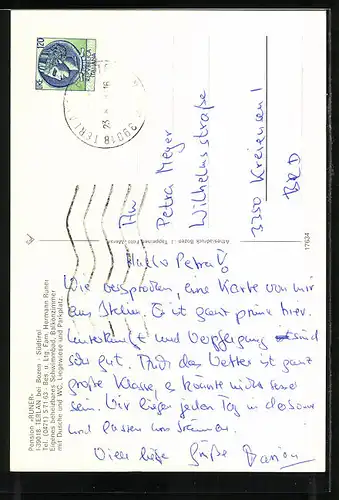 120
REPUBBLICA
ITALIANA
39018 TERLA
An
Petra Meyer
Wilhelmsstraße
3350 Kreiensen 1
BRD
17624
Hallo Petra!
Wie versprochen, eine Karte von mir
aus Italien. Es ist ganz prima hier.
Unterkunft und Verpflegung sind
sehr gut. Auch das Wetter ist ganz
große Klasse, es könnte nicht besser
sein. Wir liegen jeden Tag in der Sonne
und lassen uns bräunen.
Viele liebe Grüße Marion
Pension »RUNER«
I-39018 TERLAN bei Bozen - Südtirol
Tel. (0471) 57163 - Bes. u. Ltg. Fam. Hermann Runer
Eigenes beheizbares Schwimmbad, Balkonzimmer
mit Dusche und WC, Liegewiese und Parkplatz.